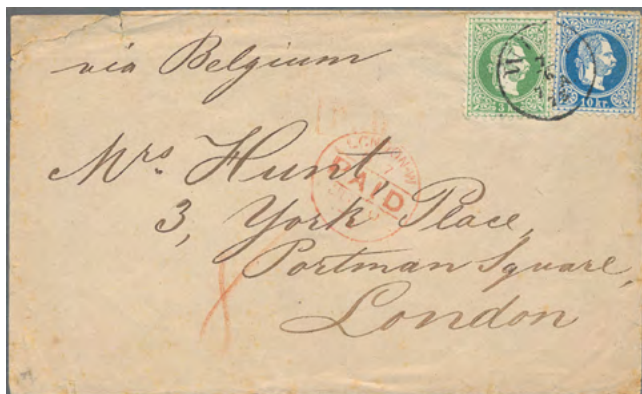 via Belgium
3
10 kr.
LONDON-W
PAID
Mrs. Hunt,
3, York Place,
Portman Square,
London